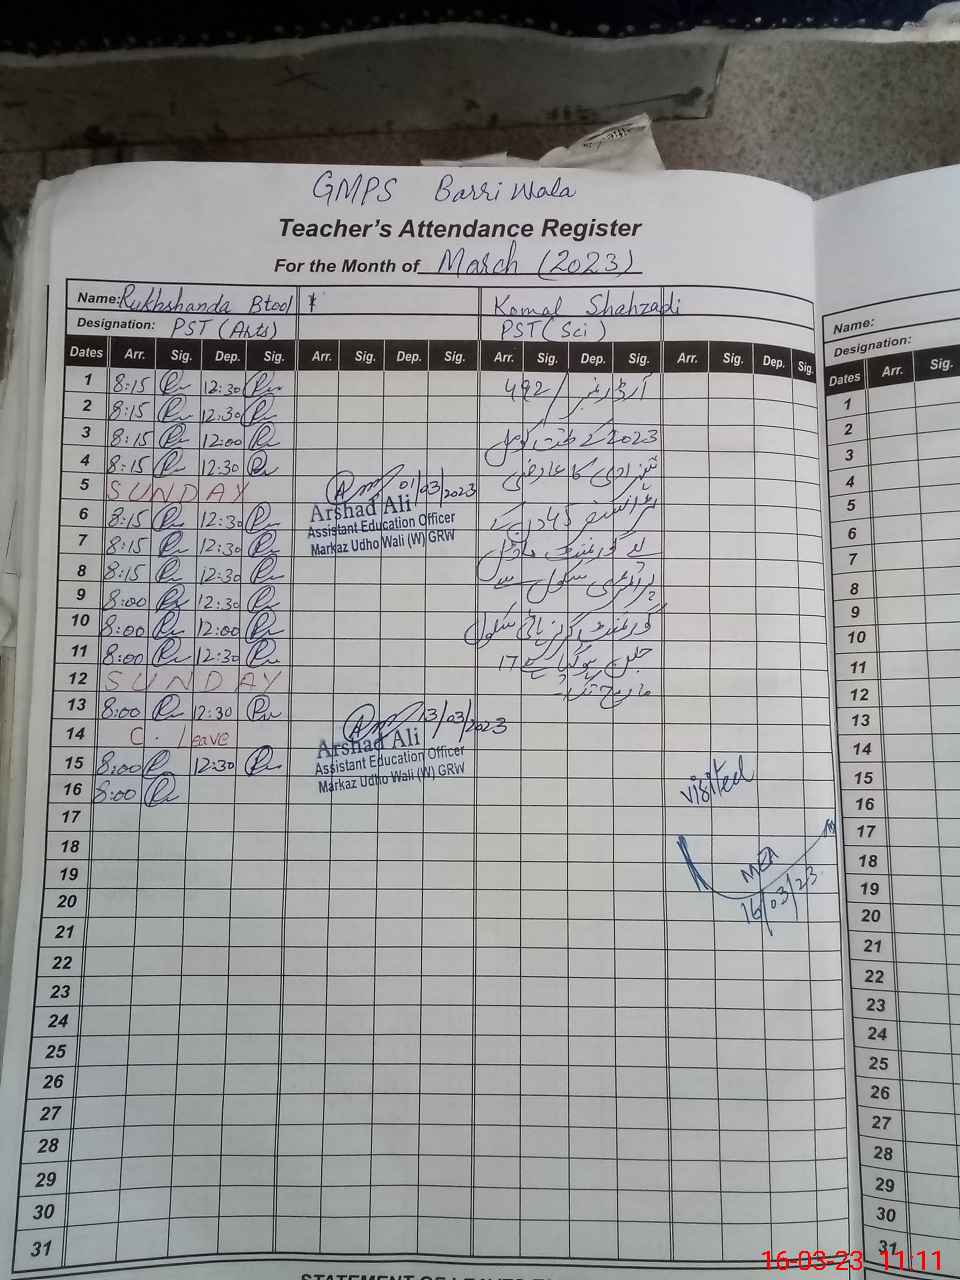 GMPS Barri Wala
Teacher's Attendance Register
For the Month of March (2023)
Name: Rukhshanda Btool
Komal Shahzadi
Designation: PST (Arts)
PST (Sci)
Dates Arr. Sig. Dep. Sig. Arr. Sig. Dep. Sig. Arr. Sig. Dep. Sig. Arr. Sig. Dep. Sig.
1 8:15 12:30
2 8:15 12:30
3 8:15 12:00
4 8:15 12:30
5 SUNDAY
6 8:15 12:30
7 8:15 12:30
8 8:15 12:30
9 8:00 12:30
10 8:00 12:00
11 8:00 12:30
12 SUNDAY
13 8:00 12:30
14 C. leave
15 8:00 12:30
16 8:00
17
18
19
20
21
22
23
24
25
26
27
28
29
30
31
01/03/2023
Arshad Ali
Assistant Education Officer
Markaz Udho Wali (W) GRW
13/03/2023
Arshad Ali
Assistant Education Officer
Markaz Udho Wali (W) GRW
آرڈر نمبر 492/
2023 کے تحت کومل
شہزادی کا عارضی
ٹرانسفر 45 دن کے
لئے گورنمنٹ ماڈل
پرائمری سکول سے
گورنمنٹ گرلز ہائی سکول
ہو گیا ہے 17
مارچ تک
visited
MEA
16/03/23
Name:
Designation:
Dates Arr. Sig.
1
2
3
4
5
6
7
8
9
10
11
12
13
14
15
16
17
18
19
20
21
22
23
24
25
26
27
28
29
30
31
16-03-23 11:11